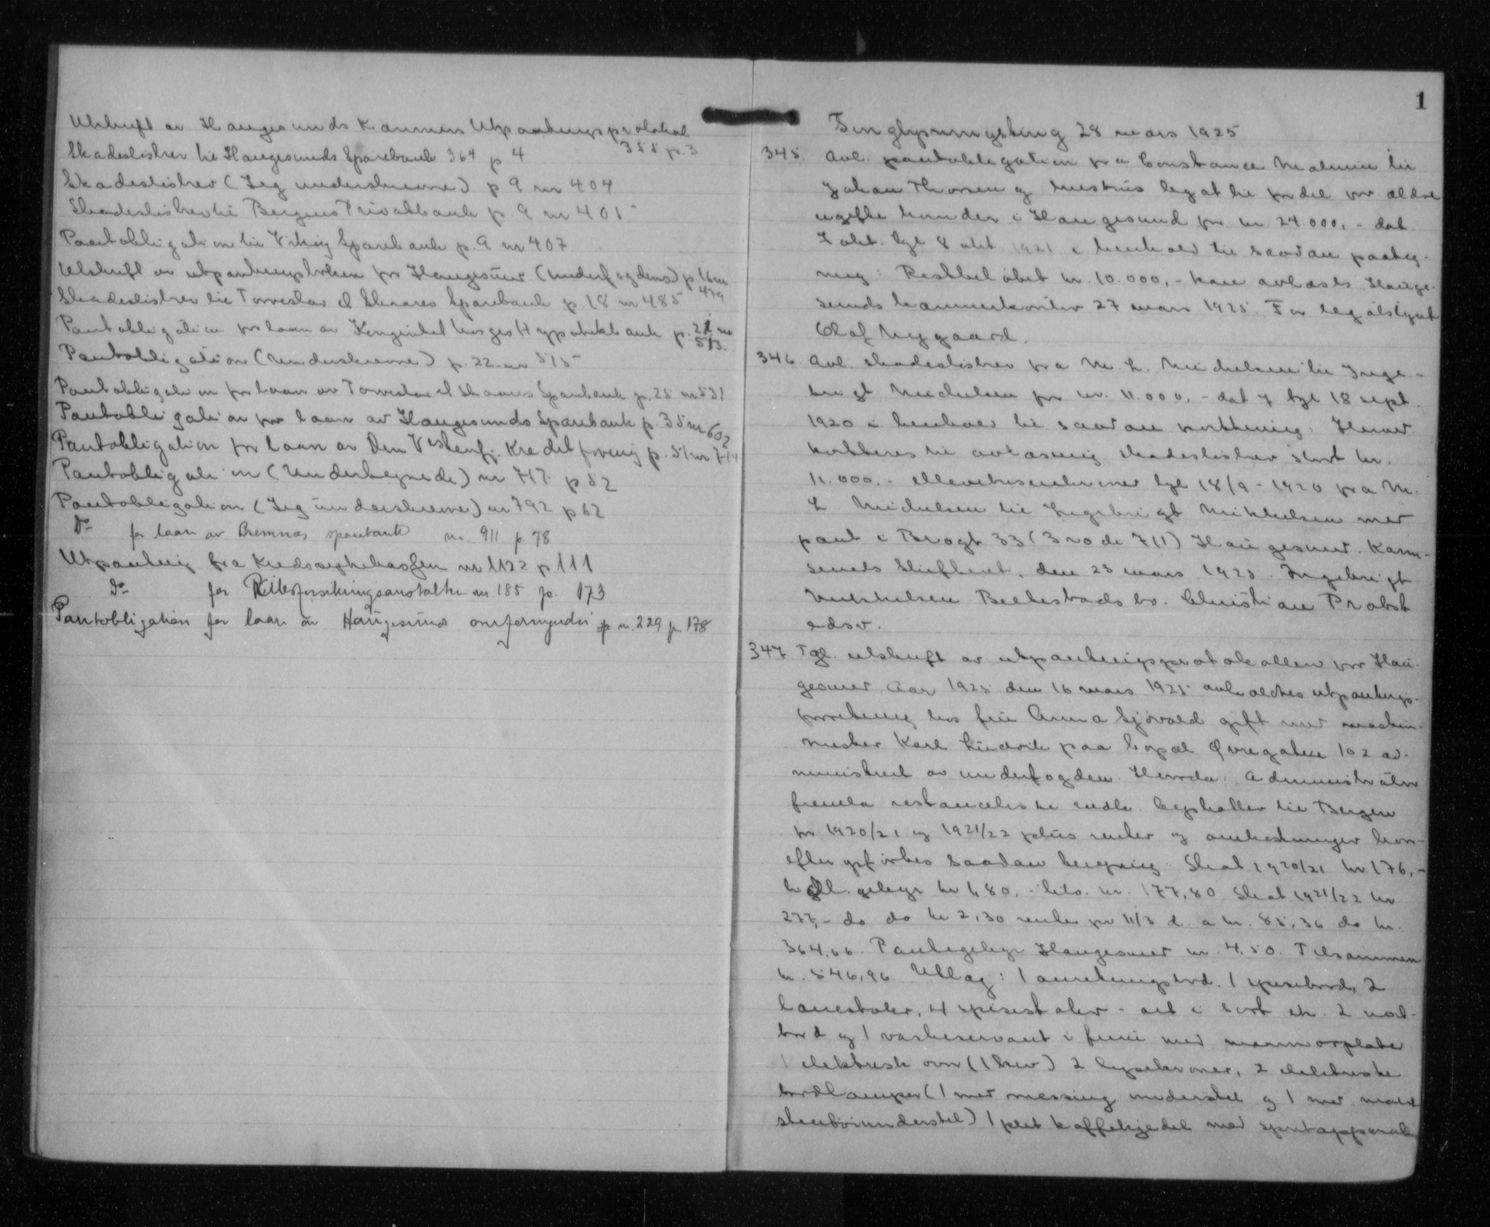 Utskrift av Haugesunds Kæmners Utpantningsprotokol
355 p. 3
Skadesløsbrev til Haugesunds Sparebank 364 p 4
Skadesløsbrev (Jeg underskrevne) p 9 nr 404
Skadesløsbrev til Bergens Privatbank p. 9 nr 405
Pantobligation til Viking Sparebank p. 9 nr 407
Utskrift av utpantningsboken for Haugesund (Underfogdens) p. 16 nr 479
Skadesløsbrev til Torvestad & Skaares Sparebank p. 18 nr 485
Pantobligation for laan av Kongeriket Norges Hypotekbank p. 22 nr 513.
Pantobligation (Underskrevne) p. 22 nr 515
Pantobligation for laan av Torvestad & Skaares Sparebank p. 25 nr 531
Pantobligation for laan av Haugesunds Sparebank p. 35 nr 602
Pantobligation for laan av Den Vestenfj. Kreditforening p. 51 nr 714
Pantobligation (Undertegnede) nr 717 p 52
Pantobligation (Jeg underskrevne) nr 792 p 62
Do for laan av Bremnes sparebank nr. 911 p. 78
Utpantning fra Kredssykekassen nr 1122 p 111
Do for Riksforsikringsanstalten nr. 185 p. 173
Pantobligation for laan av Haugesunds overformynderi nr. 229 p. 178
1
Tinglysningsting 28 mars 1925
345. Avl. pantobligation fra Constance Malmin til
Johan Thorsen og hustrus legat til fordel for ældre
ugifte kvinder i Haugesund for kr 24.000,- dat.
7 okt. tgl 8 okt 1921 i henhold til saadan paateg-
ning: Restbeløbet kr. 10.000,- kan avlæses. Hauge-
sunds kæmnerkontor 27 mars 1925. For legatstyret
Olaf Nygaard.
346 Avl. skadesløsbrev fra M. L. Michelsen til Inge-
brigt Michelsen for kr. 11.000,- dat og tgl 18 sept.
1920 i henhold til saadan kvittering: Herved
kvitteres til avlæsning skadesløsbrev stort kr.
11.000.- ellevetusenkroner tgl 18/9-1920 fra M.
L Michelsen til Ingebrigt Mikkelsen med
pant i Brogt 33 (3 rode 711) Haugesund. Karm-
sunds Skifteret, den 23 mars 1925. Ingebrigt
Mikkelsen bo. Christian Probst
edsv.
347 Tgl. utskrift av utpantningsprotokollen for Hau-
gesund. Aar 1925 den 16 mars 1925 avholdtes utpantnings-
forretning hos fru Anna Sjövold gift med maskin-
mester Karl paa Övregaten 102 ad-
ministreret av underfogden. Administrator
fremla restanceliste skatter til Bergen
for 1920/21 og 1921/22 plus renter og omkostninger hvor-
efter opførtes saadan beregning: Skat 1920/21 kr 176,-
gebyr kr 1,80.- kr. 177,80 Skat 1921/22 kr
277,- do do kr 2,30 renter pr 11/3 d. a kr. 85,36 do kr.
364,66. Pantegebyr Haugesund kr. 4.50. Tilsammen
kr. 546,96 Utlæg: 1 anretningsbord. 1 spisebord, 2
lænestoler, 4 spisestoler - alt i sort ek. 2 nat-
bord og 1 vaskeservant i furu med marmorplater
1 elektrisk ovn (1 kw) 2 lysekroner, 2 elektriske
bordlamper (1 med messing understel og 1 med malt
understel) 1 plet kaffekjedel med spritapparat